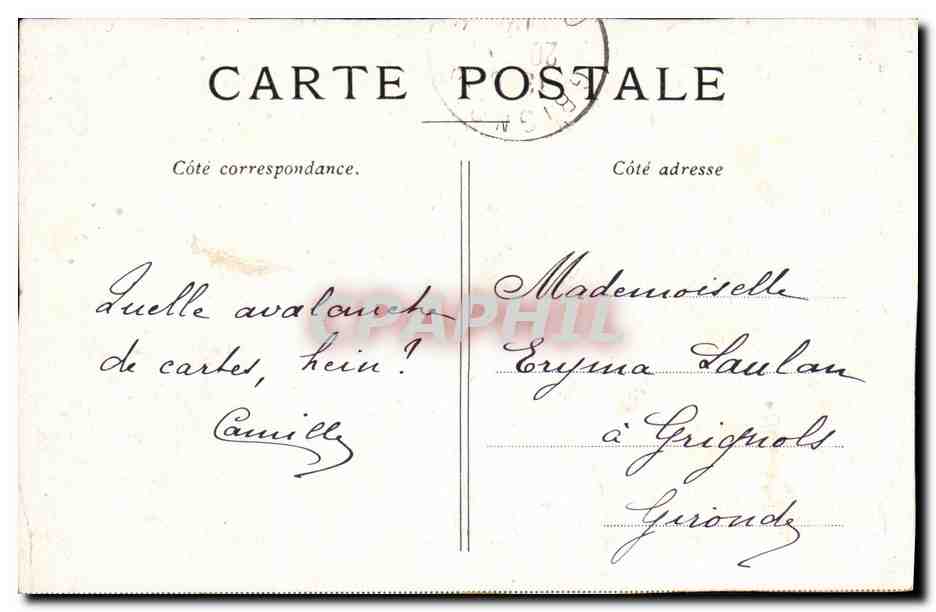 CARTE POSTALE
Côté correspondance.
Côté adresse
Quelle avalanche
de cartes, hein ?
Camille
Mademoiselle
Eryma Laulan
à Grignols
Gironde
CPAPHIL